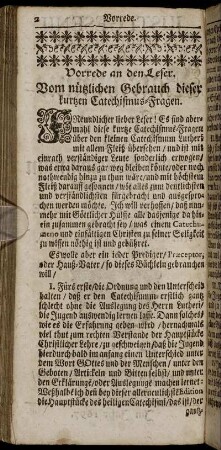 2 Vorrede.
Vorrede an den Leser.
Vom nützlichen Gebrauch dieser
kurtzen Catechismus-Fragen.
Freundlicher lieber Leser! Es sind aber-
mahl diese kurtze Catechismus-Fragen
über den kleinen Catechismum Lutheri
mit allem Fleiß übersehen / und ist mit
einrath verständiger Leute sonderlich erwogen /
was etwa daraus gar weg bleiben könte / oder noch
nothwendig hinzu zu thun wär; und mit höchstem
Fleiß darauff gesonnen / wie alles zum deutlichsten
und verständlichsten fürgebracht und ausgespro-
chen werden möchte. Ich will verhoffen / daß nun-
mehr mit Göttlicher Hülffe alle dasjenige da hin-
ein zusammen gebracht sey / was einem Catechu-
meno und einfältigen Christen zu seiner Seligkeit
zu wissen nöthig ist und gebühret.
Es wolle aber ein jeder Prediger / Præceptor,
oder Hauß-Vater / so dieses Büchlein gebrauchen
will /
1. Fürs erste / die Ordnung und den Unterscheid
halten / daß er den Catechismum erstlich gantz
schlecht ohne die Auslegung des Herrn Lutheri
die Jugend auswendig lernen lasse. Dann solches /
wie es die Erfahrung geben wird / hernachmals
viel thut zum rechten Verstande der Hauptstücke
Christlicher Lehre / zu geschweigen / daß die Jugend
hiedurch bald im anfang einen Unterschied unter
dem Wort Gottes und der Menschen / unter den
Geboten / Articklen und Bitten selbst / und unter
den Erklärunge / oder Auslegunge machen lernet.
Weßhalb ich denn bey dieser allerersten Edition
die Hauptstücke des heiligen Catechismi / das ist / der
gantz-